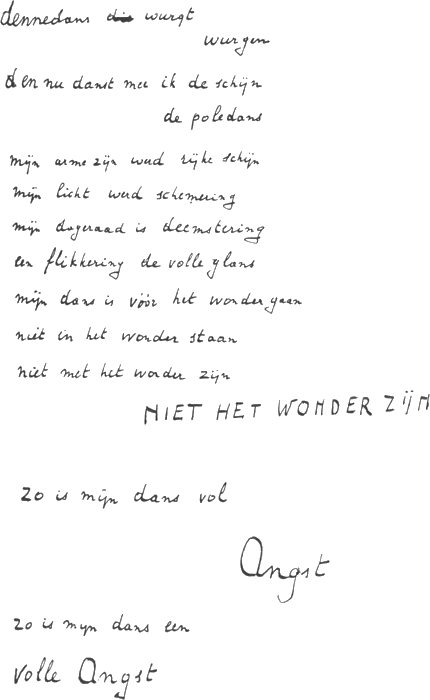 dennedans die wurgt
wurgen
den nu danst mee ik de schijn
de poledans
mijn arme zijn werd rijke schijn
mijn licht werd schemering
mijn dageraad is deemstering
een flikkering de volle glans
mijn dans is vóór het wonder gaan
niet in het wonder staan
niet met het wonder zijn
NIET HET WONDER ZIJN
zo is mijn dans vol
Angst
zo is mijn dans een
volle Angst